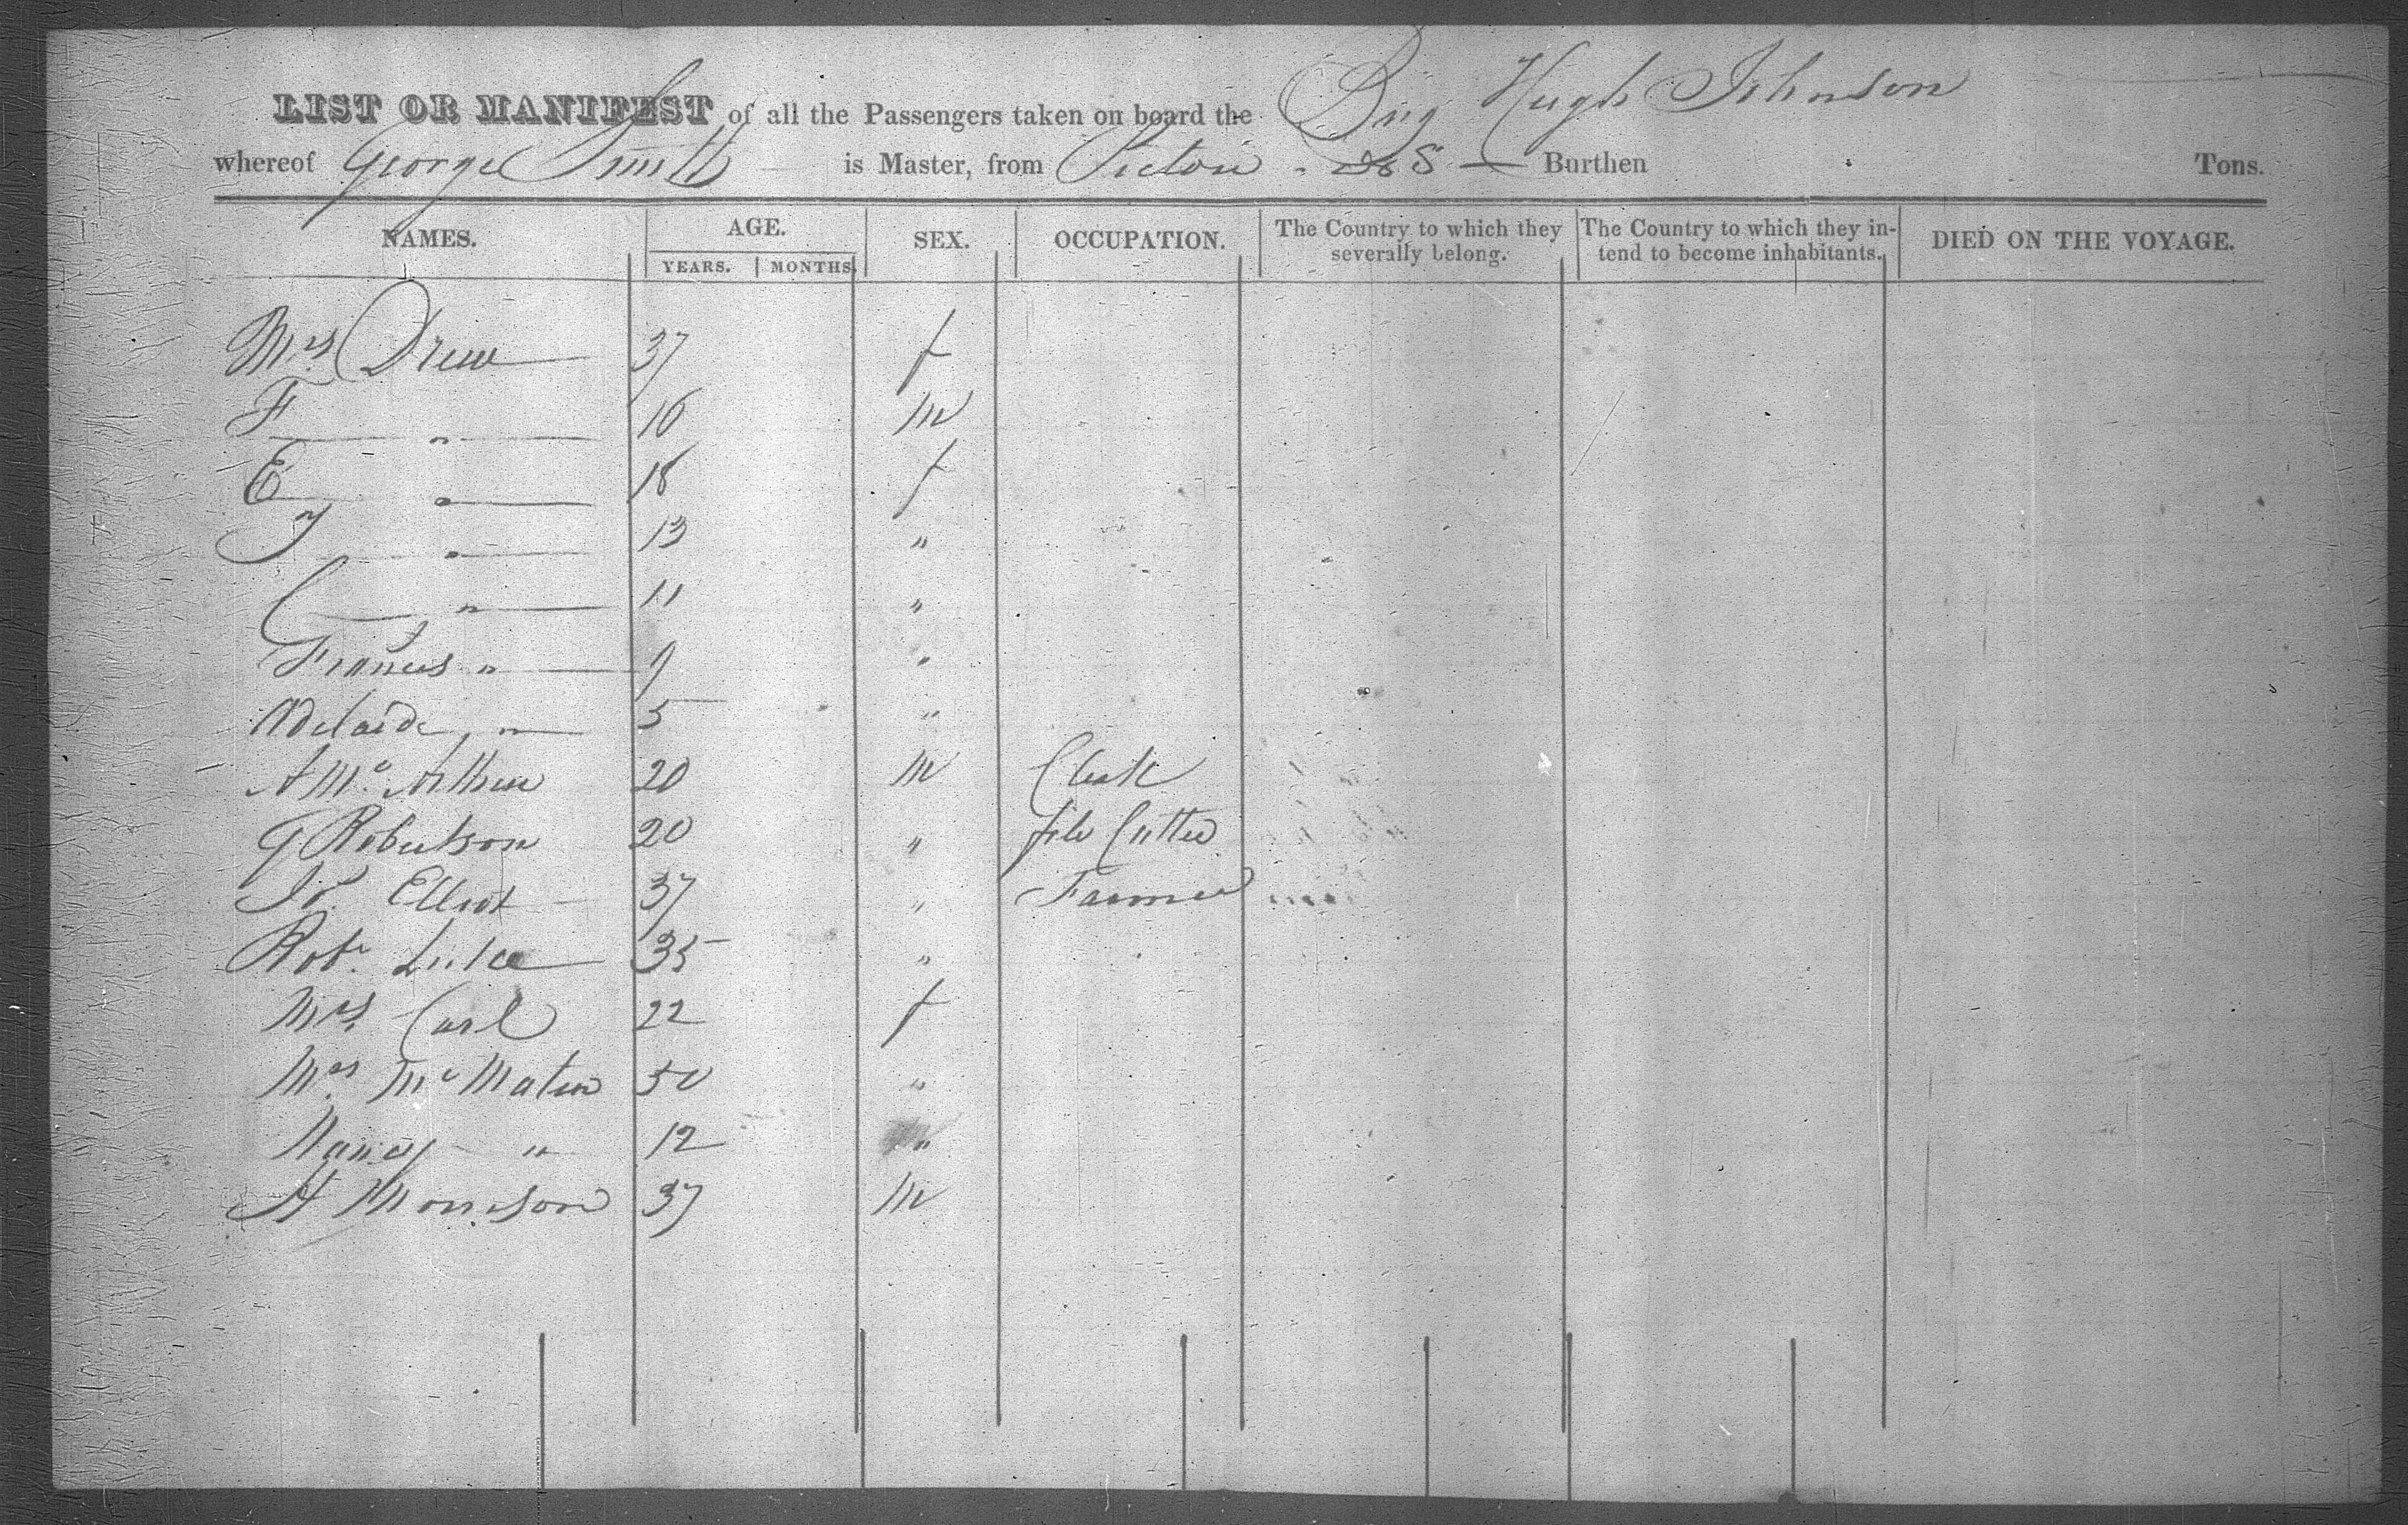 LIST OR MANIFEST of all the Passengers taken on board the Brig Hugh Johnson
whereof George Smith is Master, from Pictou N S Burthen Tons.
NAMES. AGE. YEARS. MONTHS. SEX. OCCUPATION. The Country to which they severally belong. The Country to which they intend to become inhabitants. DIED ON THE VOYAGE.
Mrs Drew 37 f
F " 16 M
E " 18 f
J " 13 "
C " 11 "
Frances " 9 "
Adelaide " 5 "
A Mc Arthur 20 M Clerk
G Robertson 20 " file Cutter
Jos. Elliot 37 " Farmer
Robt. 35 "
Mrs. Carl 22 f
Mrs. 50 "
Nancy " 12 "
A Morrison 37 M